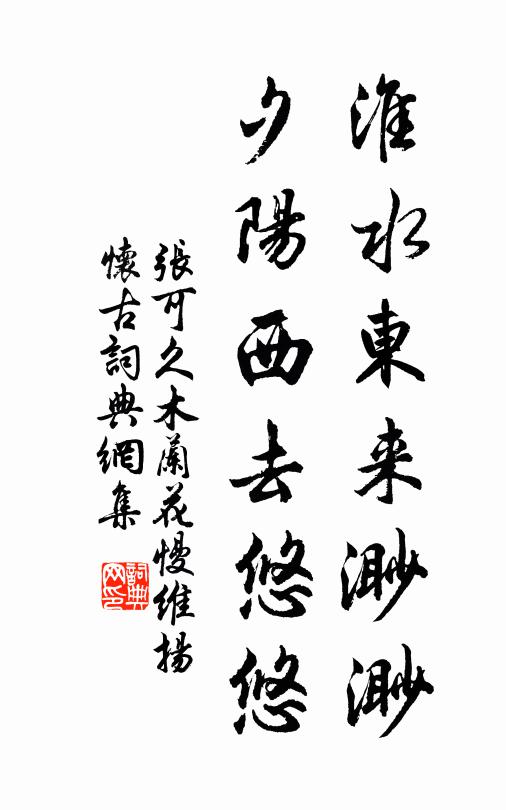 淮水東来渺渺
夕陽西去悠悠
張可久木蘭花慢維揚
懷古詞典網集
詞典
网印